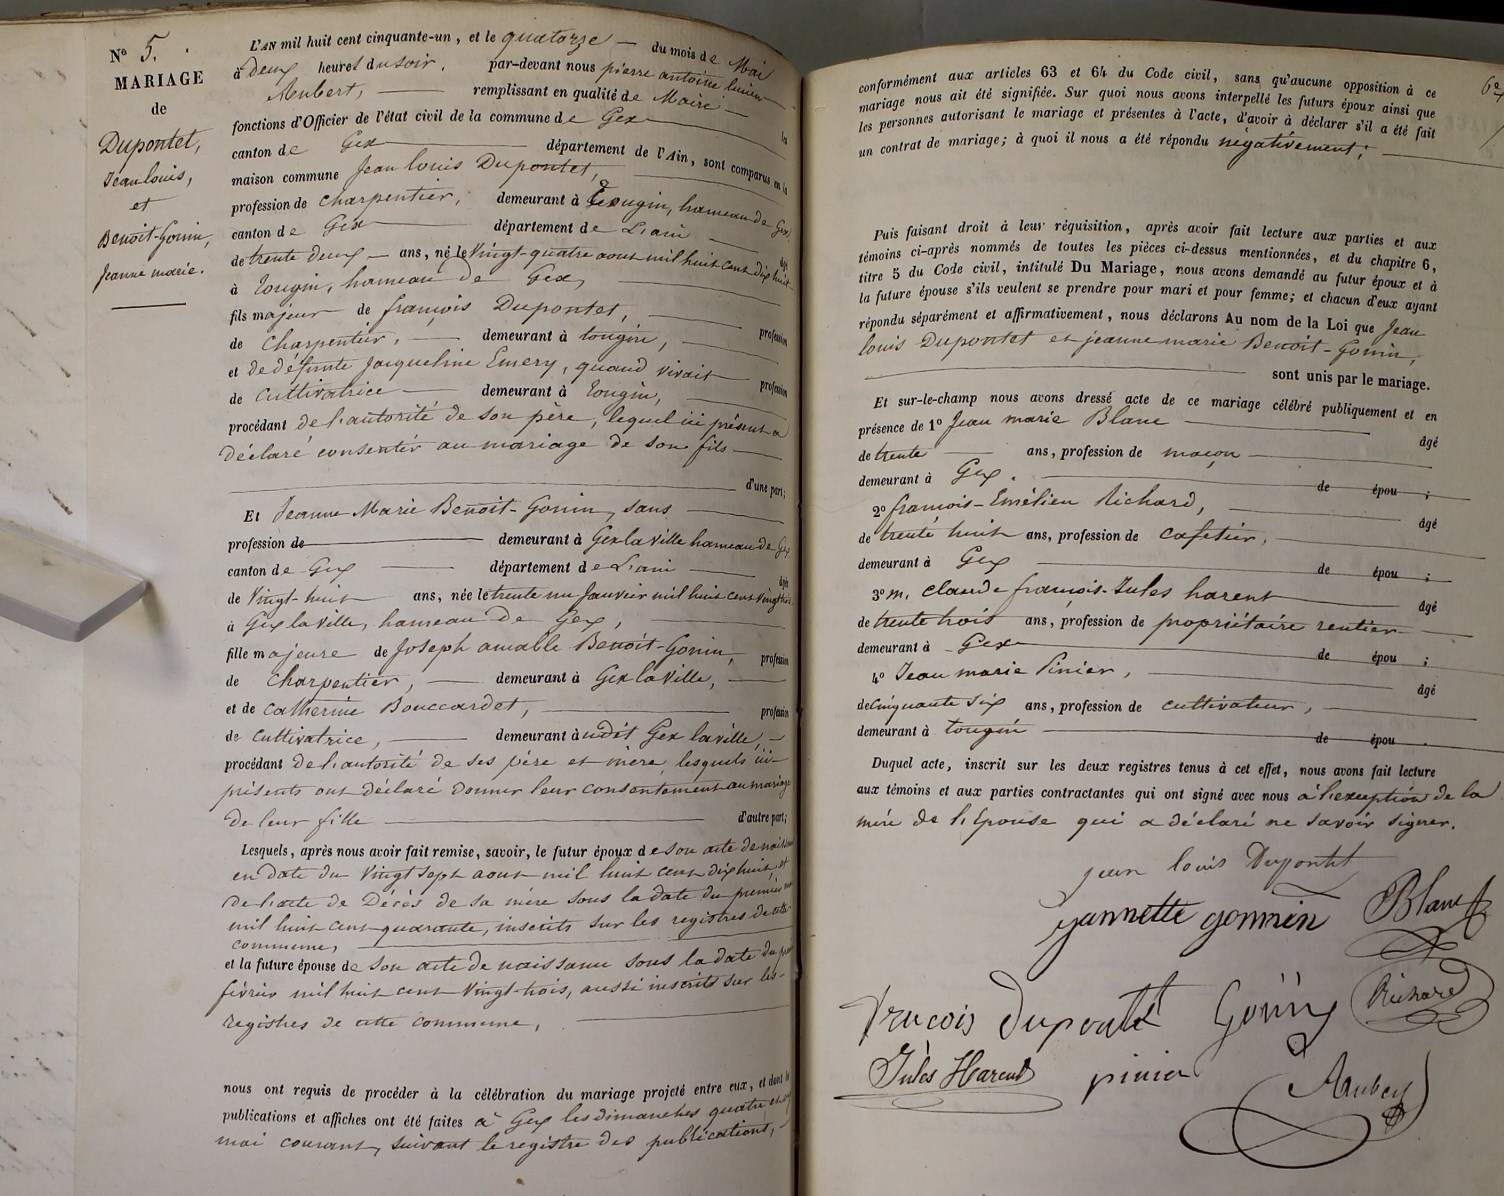 N° 5.
MARIAGE
de
Dupontet,
Jean louis,
et
Benoit-Gonin,
Jeanne marie.
L'AN mil huit cent cinquante-un, et le quatorze du mois de Mai
à deux heures du soir, par-devant nous pierre antoine
Aubert, remplissant en qualité de Maire
fonctions d'Officier de l'état civil de la commune de Gex
canton de Gex département de l'Ain, sont comparus en la
maison commune Jean louis Dupontet,
profession de charpentier, demeurant à Tougin, hameau de Gex,
canton de Gex département de L'ain
de trente deux ans, né le Vingt-quatre aout mil huit cent dix huit
à Tougin, hameau de Gex,
fils majeur de françois Dupontet, profession
de Charpentier, demeurant à tougin,
et de défunte Jacqueline Emery, quand vivait profession
de cultivatrice demeurant à Tougin,
procédant de l'autorité de son père, lequel ici présent a
déclaré consentir au mariage de son fils
d'une part;
Et Jeanne Marie Benoit-Gonin, sans
profession de demeurant à Gex la Ville hameau de Gex
canton de Gex département de L'ain âgée
de Vingt-huit ans, née le trente un Janvier mil huit cent vingt trois
à Gex la Ville, hameau de Gex,
fille majeure de Joseph amable Benoit-Gonin, profession
de Charpentier, demeurant à Gex la Ville,
et de catherine Bouccardet, profession
de cultivatrice, demeurant à udit Gex la ville,
procédant de l'autorité de ses père et mère, lesquels ici
présents ont déclaré donner leur consentement au mariage
de leur fille d'autre part;
Lesquels, après nous avoir fait remise, savoir, le futur époux de son acte de naissance
en date du Vingt sept aout mil huit cent dix huit, et
de l'acte de Décès de sa mère sous la date du premier
mil huit cent quarante, inscrits sur les registres de cette
commune,
et la future épouse de son acte de naissance sous la date du
février mil huit cent Vingt-trois, aussi inscrits sur les
registres de cette commune,
nous ont requis de procéder à la célébration du mariage projeté entre eux, et dont les
publications et affiches ont été faites à Gex les dimanches quatre et
mai courant, suivant le registre des publications,
conformément aux articles 63 et 64 du Code civil, sans qu'aucune opposition à ce
mariage nous ait été signifiée. Sur quoi nous avons interpellé les futurs époux ainsi que
les personnes autorisant le mariage et présentes à l'acte, d'avoir à déclarer s'il a été fait
un contrat de mariage; à quoi il nous a été répondu négativement;
Puis faisant droit à leur réquisition, après avoir fait lecture aux parties et aux
témoins ci-après nommés de toutes les pièces ci-dessus mentionnées, et du chapitre 6,
titre 5 du Code civil, intitulé Du Mariage, nous avons demandé au futur époux et à
la future épouse s'ils veulent se prendre pour mari et pour femme; et chacun d'eux ayant
répondu séparément et affirmativement, nous déclarons Au nom de la Loi que Jean
louis Dupontet et jeanne marie Benoit-Gonin,
sont unis par le mariage.
Et sur-le-champ nous avons dressé acte de ce mariage célébré publiquement et en
présence de 1° Jean marie Blanc âgé
de trente ans, profession de maçon
demeurant à Gex. de épou ;
2° françois-Emélien Richard, âgé
de trente huit ans, profession de cafetier,
demeurant à Gex de épou ;
3° m. claude françois-Jules harent âgé
de trente trois ans, profession de propriétaire rentier
demeurant à Gex de épou ;
4° Jean marie Pinier, âgé
de cinquante six ans, profession de cultivateur,
demeurant à tougin de épou
Duquel acte, inscrit sur les deux registres tenus à cet effet, nous avons fait lecture
aux témoins et aux parties contractantes qui ont signé avec nous à l'exception de la
mère de l'Epouse qui a déclaré ne savoir signer.
jean louis Dupontet
jannette gonnin Blanc
francois Dupontet Gonin Richard
Jules Harent pinier Aubert